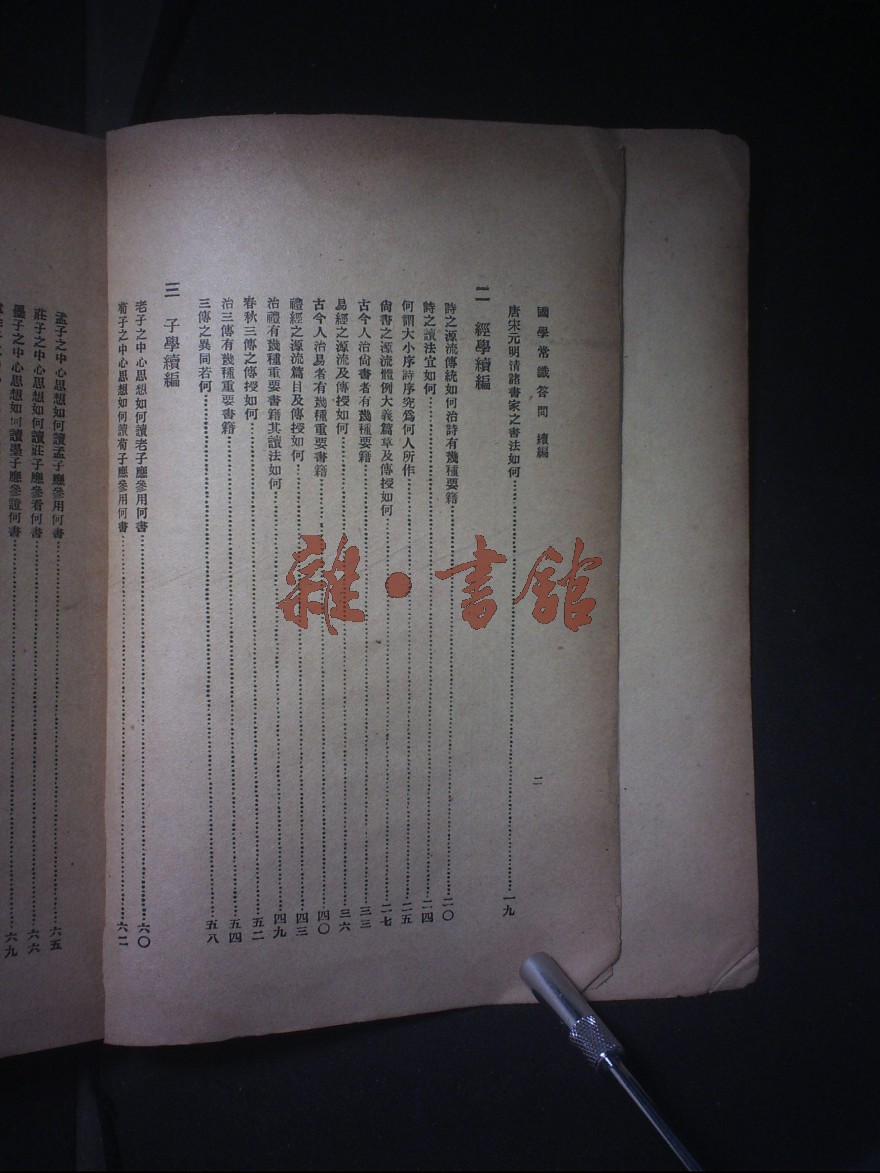 國學常識答問 續編
二
唐宋元明清諸書家之書法如何⋯⋯一九
二 經學續編
詩之源流傳統如何治詩有幾種要籍⋯⋯二〇
詩之讀法宜如何⋯⋯二四
何謂大小序詩序究爲何人所作⋯⋯二五
尙書之源流體例大義篇章及傳授如何⋯⋯二七
古今人治尙書者有幾種要籍⋯⋯三三
易經之源流及傳授如何⋯⋯三六
古今人治易者有幾種重要書籍⋯⋯四〇
禮經之源流篇目及傳授如何⋯⋯四三
治禮有幾種重要書籍其讀法如何⋯⋯四九
春秋三傳之傳授如何⋯⋯五二
治三傳有幾種重要書籍⋯⋯五四
三傳之異同若何⋯⋯五八
三 子學續編
老子之中心思想如何讀老子應參用何書⋯⋯六〇
荀子之中心思想如何讀荀子應參用何書⋯⋯六二
孟子之中心思想如何讀孟子應參用何書⋯⋯六五
莊子之中心思想如何讀莊子應參看何書⋯⋯六六
墨子之中心思想如何讀墨子應參證何書⋯⋯六九
雜·書館